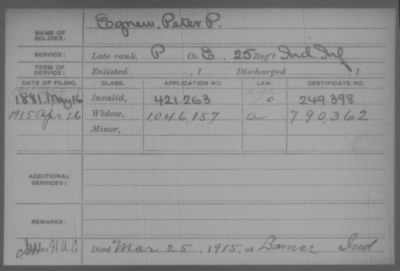 Egnew, Peter P.
NAME OF
SOLDIER:
SERVICE: Late rank, P Co. E, 25 Reg't Ind. Inf
TERM OF
SERVICE: Enlisted , 1 Discharged , 1
DATE OF FILING. CLASS. APPLICATION NO. LAW. CERTIFICATE NO.
1881, May 16 Invalid, 421.263 249.398
1915 Apr. 26 Widow, 1046,157 790,362
Minor,
ADDITIONAL
SERVICES:
REMARKS:
Died Mar 25, 1915, at Ind